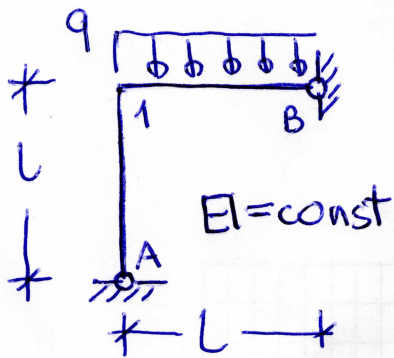 q
1
B
L
EI=const
A
L